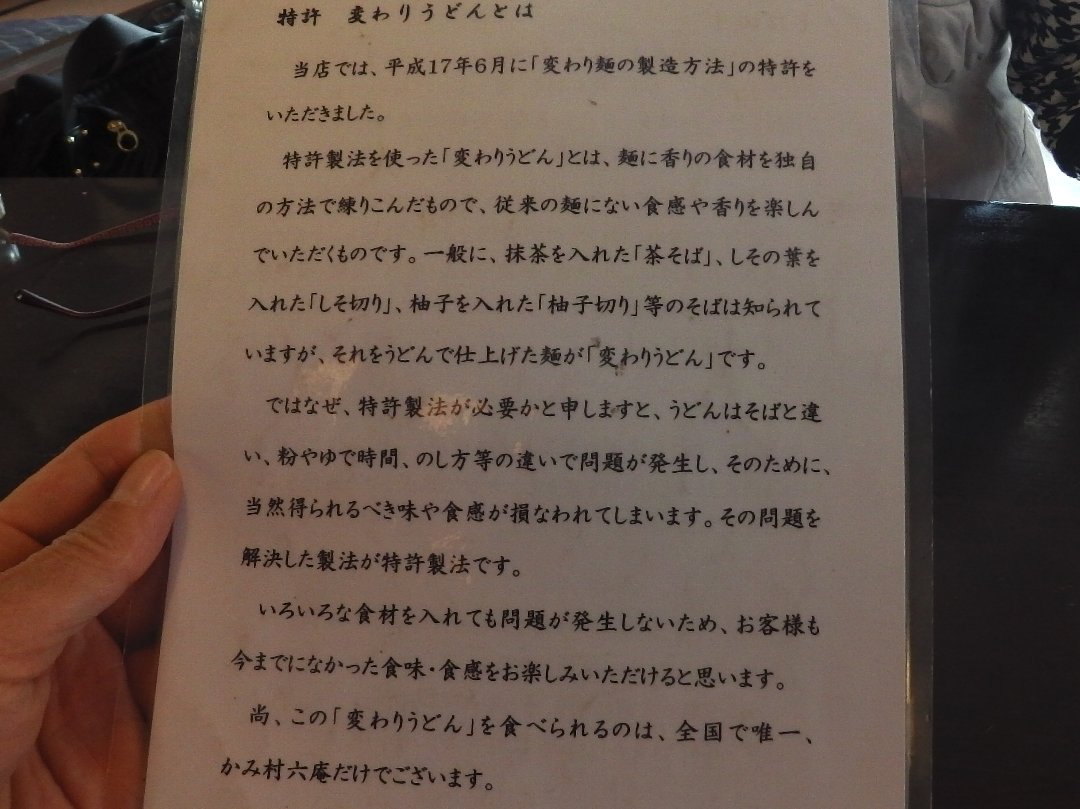 特許 変わりうどんとは
当店では、平成17年6月に「変わり麺の製造方法」の特許を
いただきました。
特許製法を使った「変わりうどん」とは、麺に香りの食材を独自
の方法で練りこんだもので、従来の麺にない食感や香りを楽しん
でいただくものです。一般に、抹茶を入れた「茶そば」、しその葉を
入れた「しそ切り」、柚子を入れた「柚子切り」等のそばは知られて
いますが、それをうどんで仕上げた麺が「変わりうどん」です。
ではなぜ、特許製法が必要かと申しますと、うどんはそばと違
い、粉やゆで時間、のし方等の違いで問題が発生し、そのために、
当然得られるべき味や食感が損なわれてしまいます。その問題を
解決した製法が特許製法です。
いろいろな食材を入れても問題が発生しないため、お客様も
今までになかった食味・食感をお楽しみいただけると思います。
尚、この「変わりうどん」を食べられるのは、全国で唯一、
かみ村六庵だけでございます。